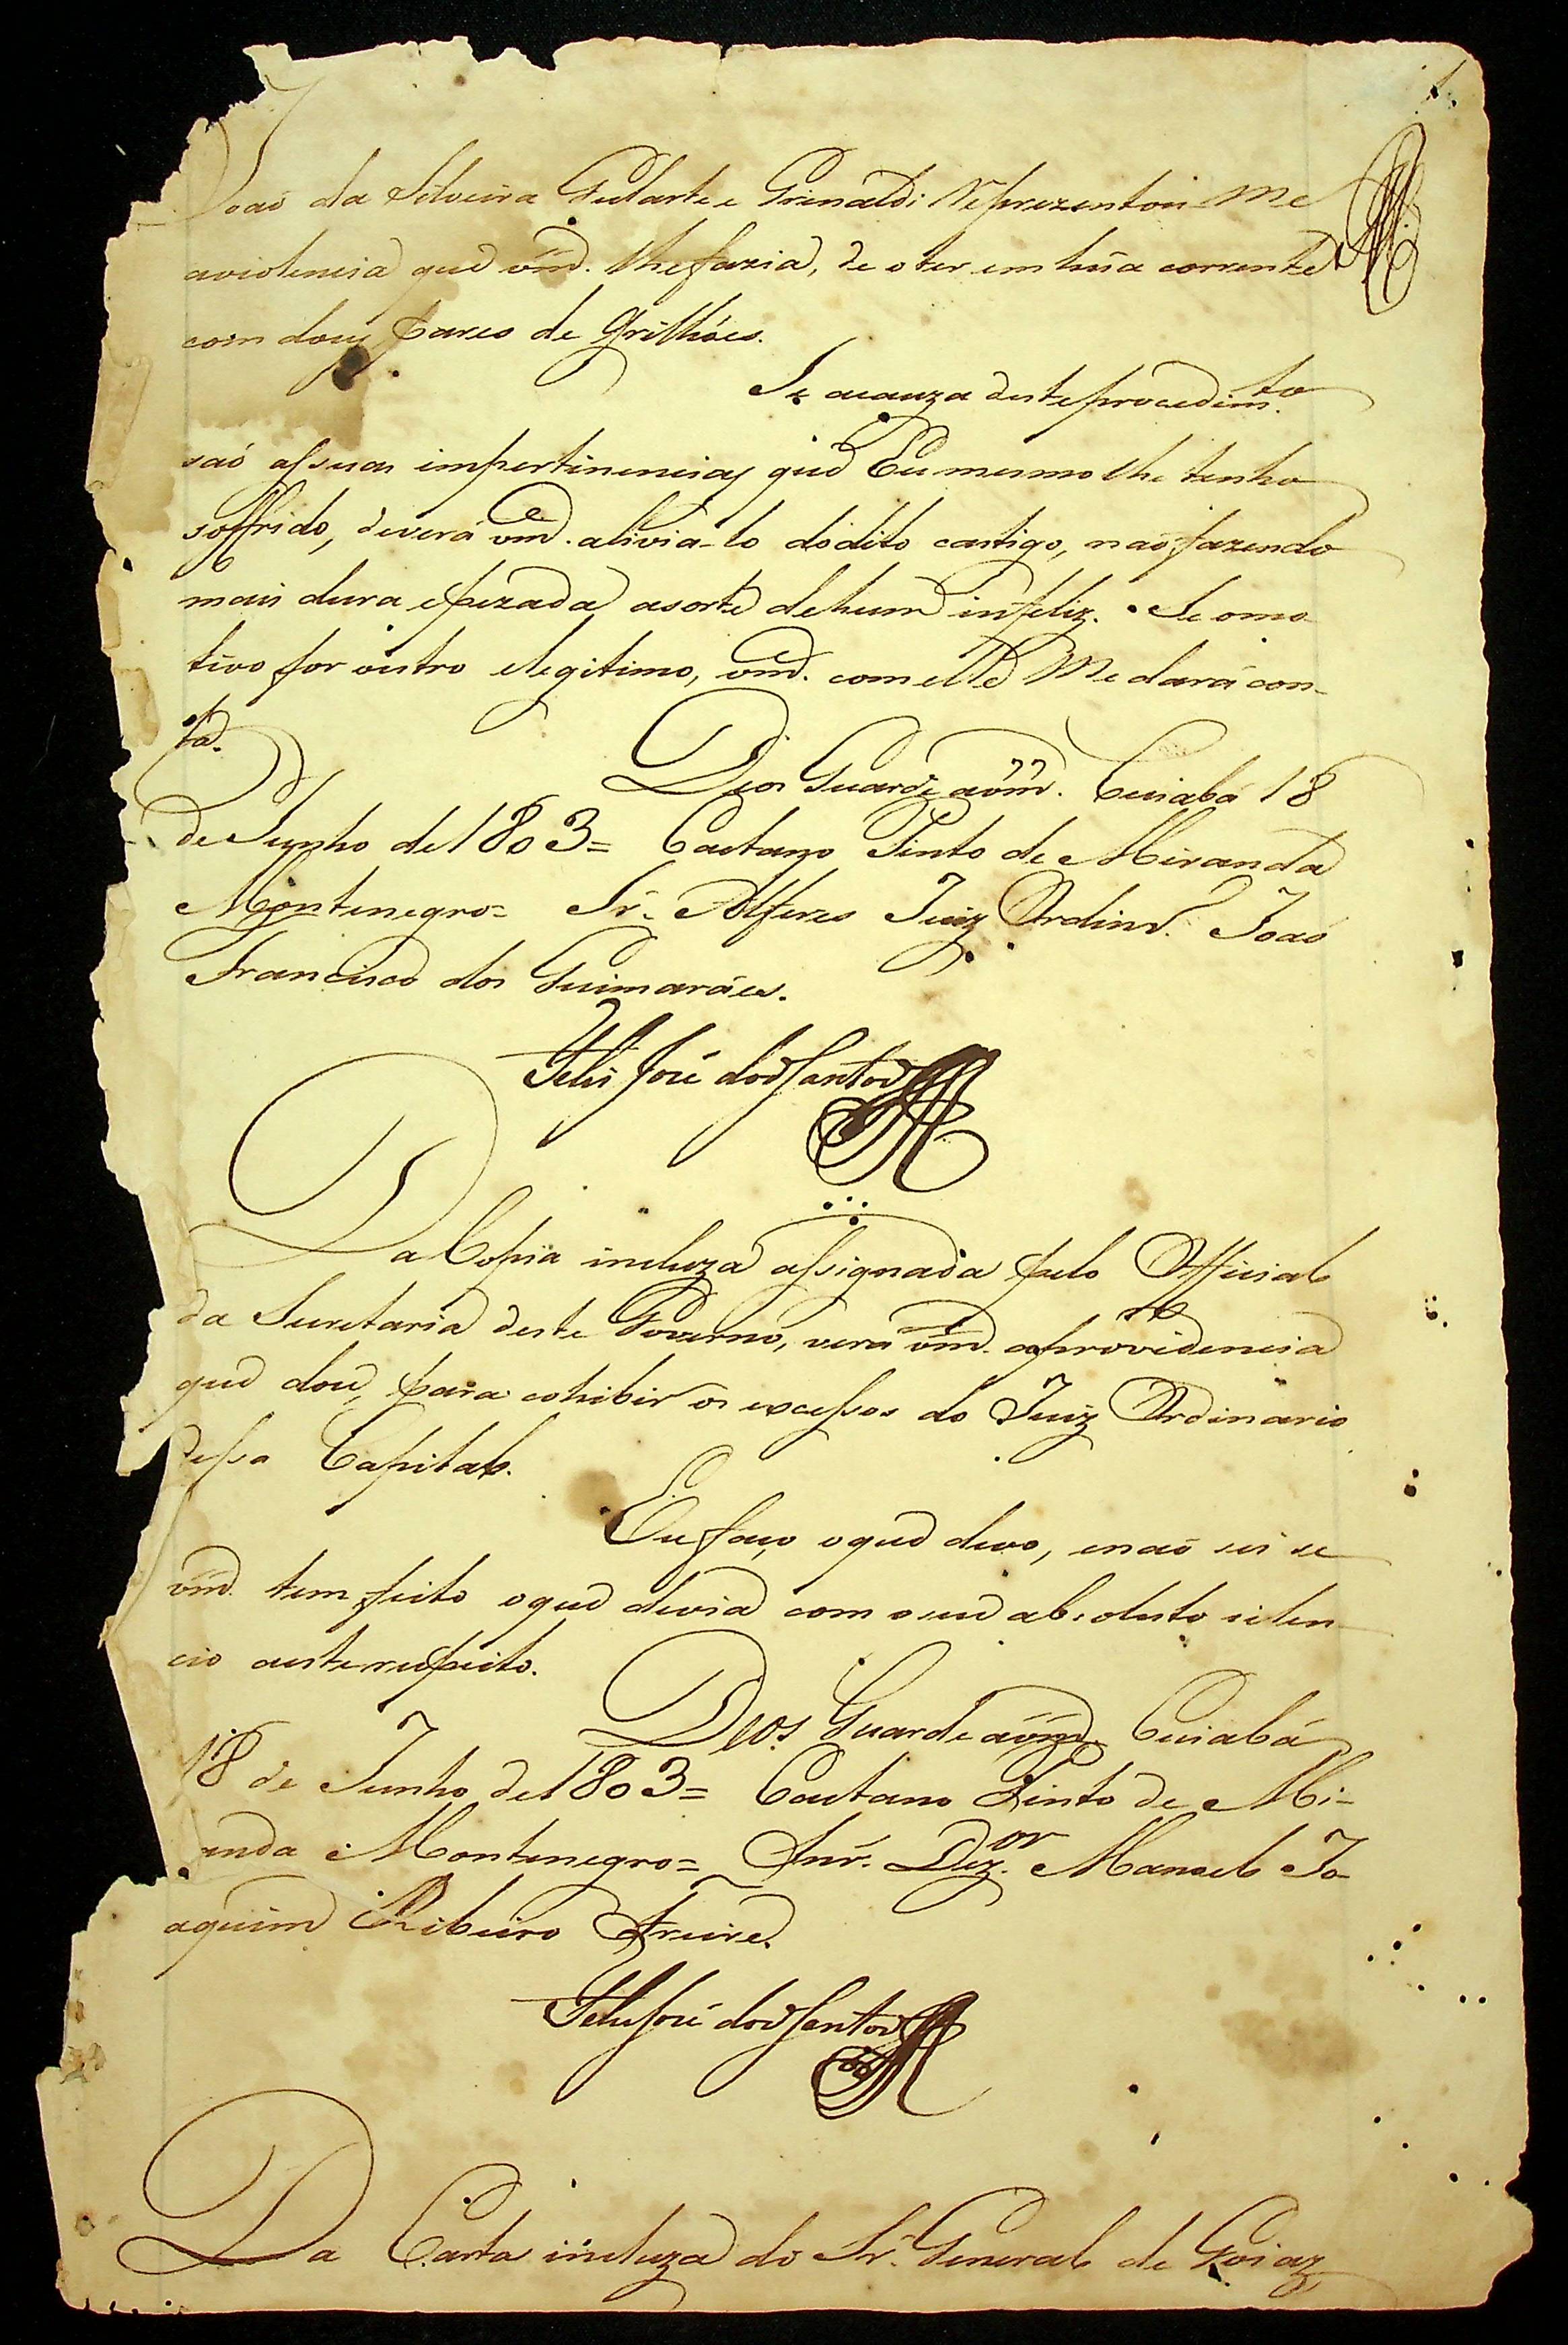 1.
Joaõ da Silveira Gularte e Grinaldi Reprezentou Me
aviolencia que vm̃. lhefazia, de oter em hũa corrente
com dous pares de Grilhoẽs.
Se acauza desteprocedimto.
saõ assuas impertinencias que Eu mesmo lhe tenho
soffrido, deverá vm̃. alivia-lo dodito castigo, naõ fazendo
mais dura epezada asorte dehum infeliz. Se omo
tivo for outro elegitimo, vm̃. comelle Me dará con-
ta.
Deos Guarde avm̃. Cuiabá 18
de Junho de 1803= Caetano Pinto de Miranda
Montenegro= Sr. Alferes Juiz Ordinr.o João
Francisco dos Guimarães.
Felis José dos Santos
Da Copia incluza assignada pelo Official
da Secretaria deste Governo, verá vm̃. aprovidencia
que dou, para cohibir os excessos do Juiz Ordinario
dessa Capital.
Eu faço oque devo, enaõ sei se
vm̃. tem feito oque devia com oseu absoluto silen
cio aesterespeito.
Deos Guarde avm̃. Cuiabá
18 de Junho de 1803= Caetano Pinto de Mi-
randa Montenegro= Snr. Dez.or Manoel Jo-
aquim Ribeiro Freire.
Felis José dos Santos
Da Carta incluza do Sr. General de Goiaz